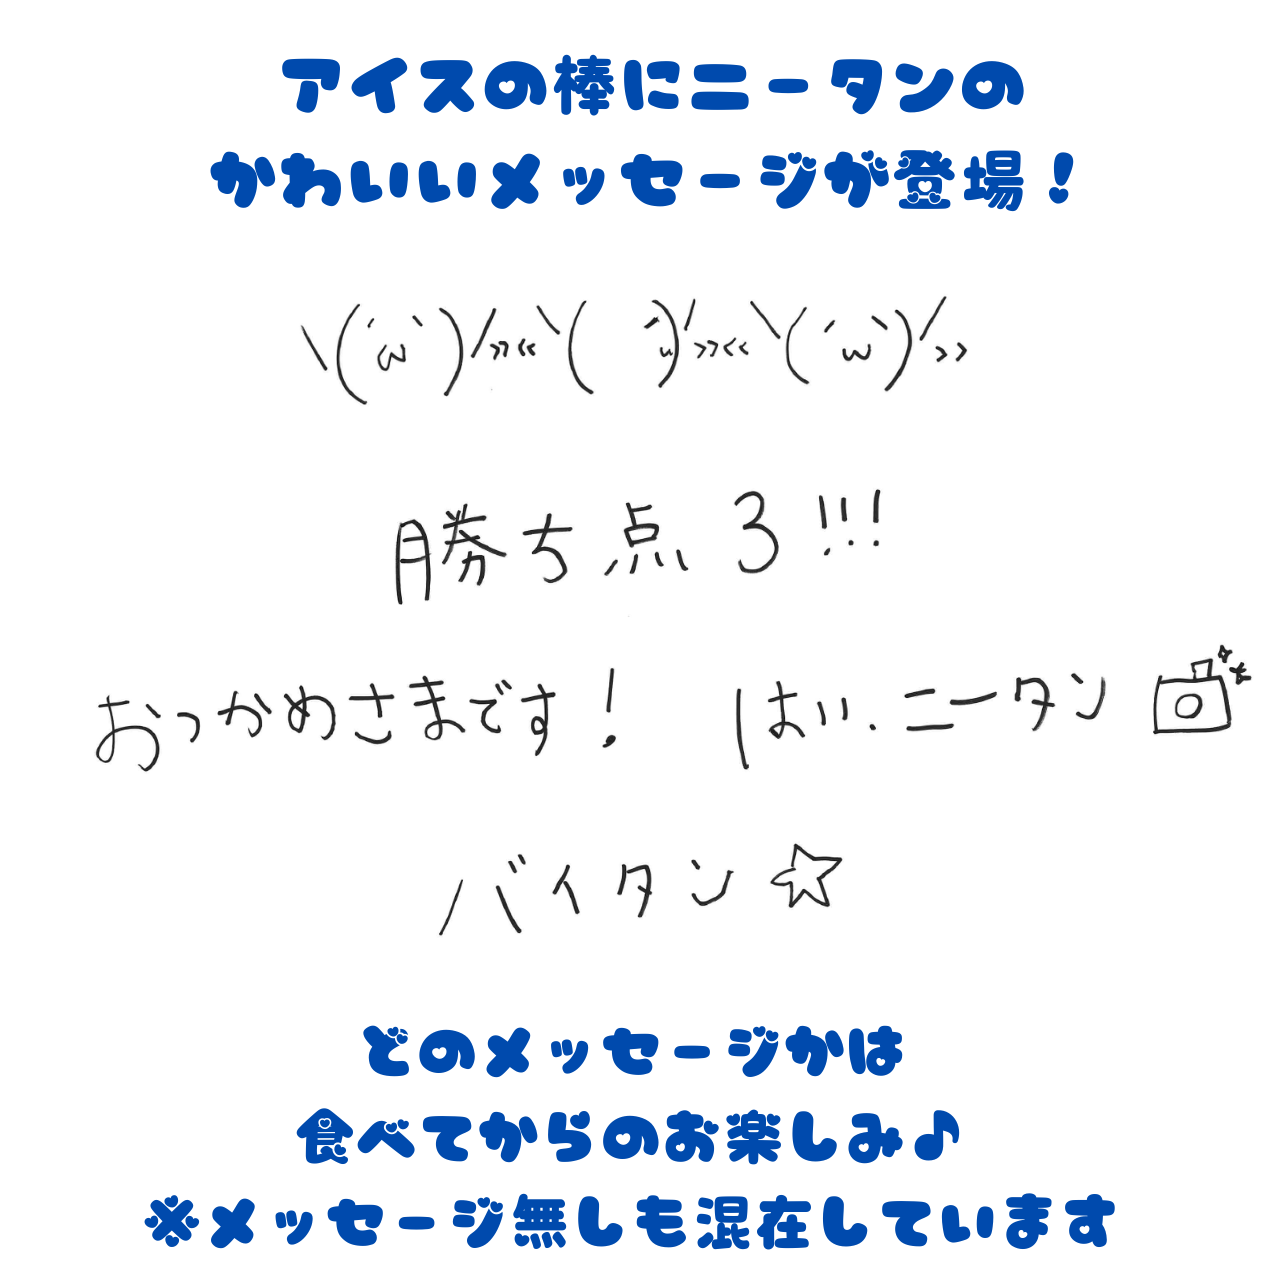 アイスの棒にニータンの
かわいいメッセージが登場！
\(´ω`)/>><<\(　´u)/>><<\(´ω`)/>>
勝ち点3!!!
おっかめさまです！　はい、ニータン
バイタン☆
どのメッセージかは
食べてからのお楽しみ♪
※メッセージ無しも混在しています